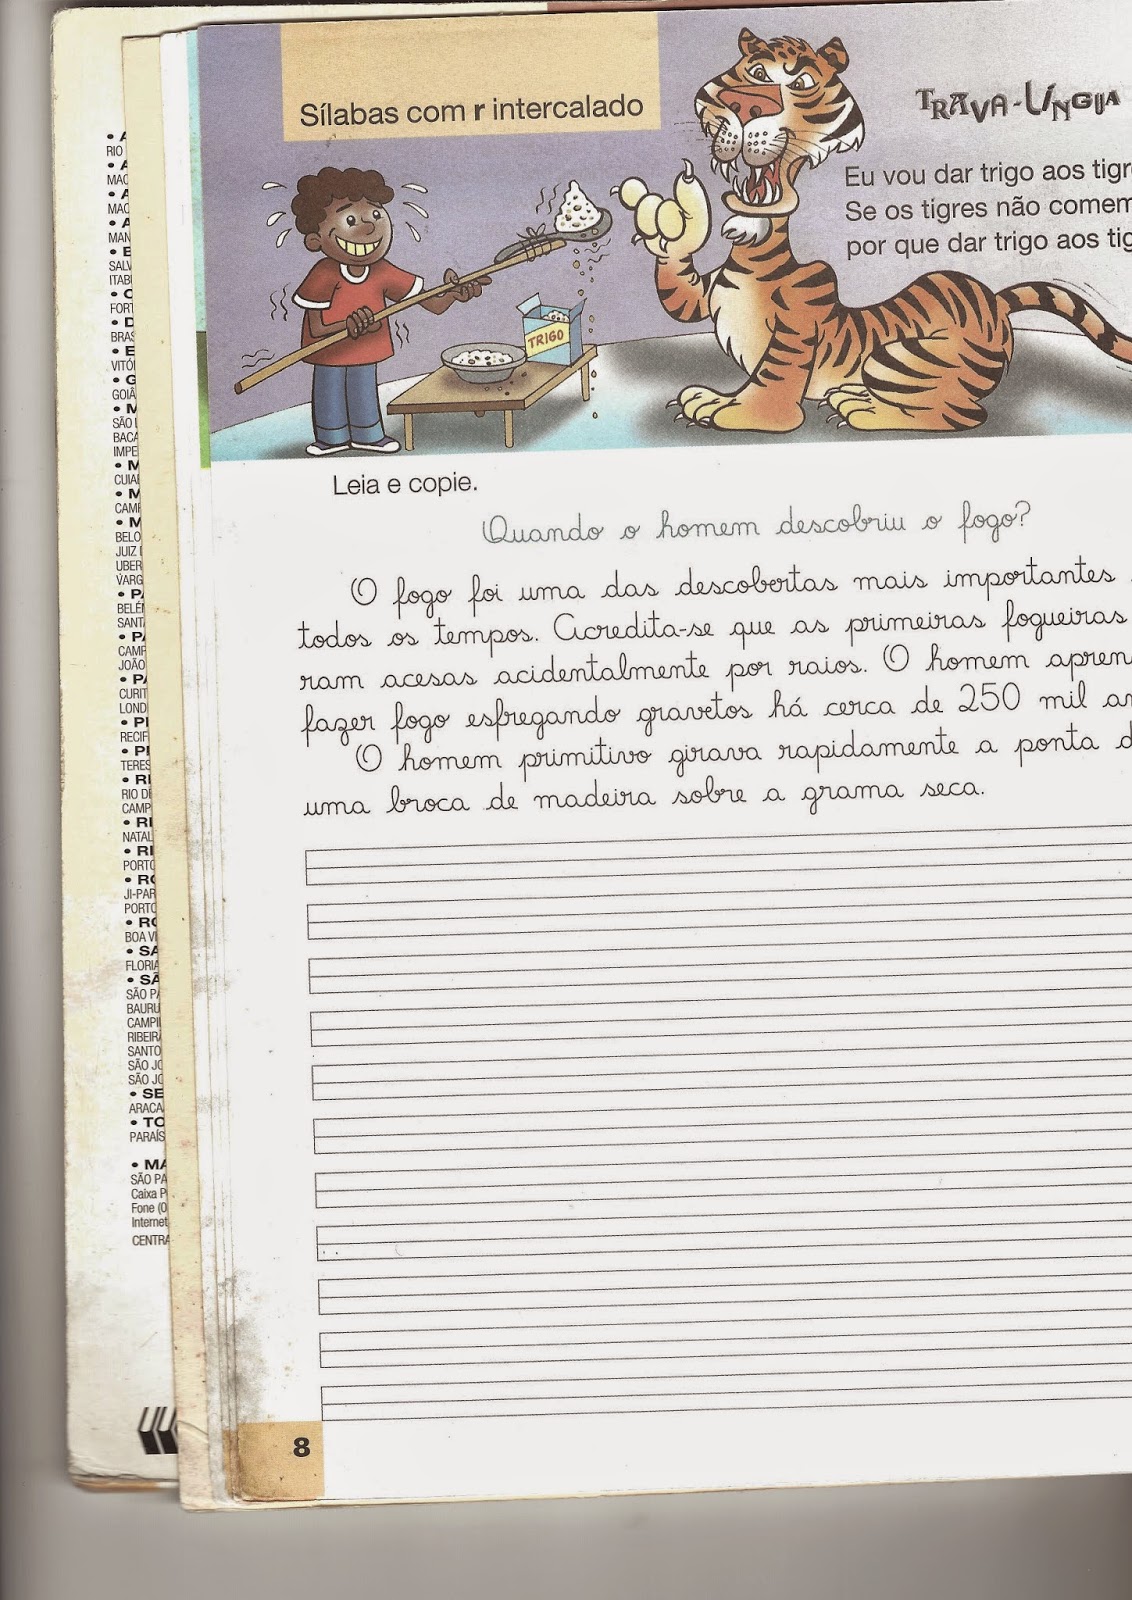 Sílabas com r intercalado
TRAVA-LÍNGUA
Eu vou dar trigo aos
Se os tigres não comem
por que dar trigo aos
TRIGO
Leia e copie.
Quando o homem descobriu o fogo?
O fogo foi uma das descobertas mais importantes
todos os tempos. Acredita-se que as primeiras fogueiras
ram acesas acidentalmente por raios. O homem
fazer fogo esfregando gravetos há cerca de 250 mil
O homem primitivo girava rapidamente a ponta
uma broca de madeira sobre a grama seca.
8
• A
RIO
• A
MAC
• A
MAC
• A
MAN
• B
SALV
ITAB
• C
FORT
• D
BRAS
• E
VITÓ
• G
GOIÂ
• M
SÃO L
BACA
IMPE
• M
CUIA
• M
CAMP
• M
BELO
JUIZ
UBER
VARG
• PA
BELÉM
SANTA
• PA
CAMP
JOÃO
• PA
CURIT
LOND
• PE
RECIF
• PI
TERES
• RI
RIO DE
CAMP
• RI
NATAL
• RI
PORTO
• RO
JI-PAR
PORTO
• RO
BOA VI
• SA
FLORIA
• SÃ
SÃO PA
BAURU
CAMPI
RIBEIRÃ
SANTO
SÃO JO
SÃO JO
• SE
ARACA
• TO
PARAÍS
• MA
SÃO PA
Caixa P
Fone (0
Internet
CENTRA